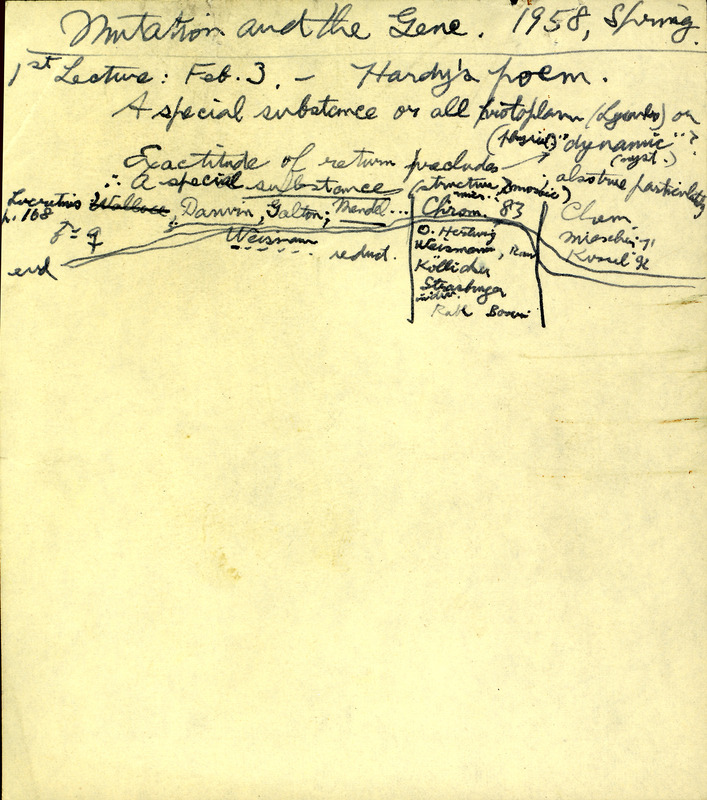 Mutation and the Gene. 1958, Spring.
1st Lecture: Feb. 3. – Hardy's poem.
A special substance or all protoplasm (Lysenko) or
(physiol.) "dynamic"?
(myst.)
Exactitude of return precludes absolute particularity
∴ A special substance (structure,
Lucretius Wallace, Darwin, Galton; Mendel... Chrom. 83 Chem.
p. 168
♂ = ♀ Weismann reduct. O. Hertwig Miescher 71
end Weismann, Kossel 92
Kölliker
Strasburger
Rabl Boveri